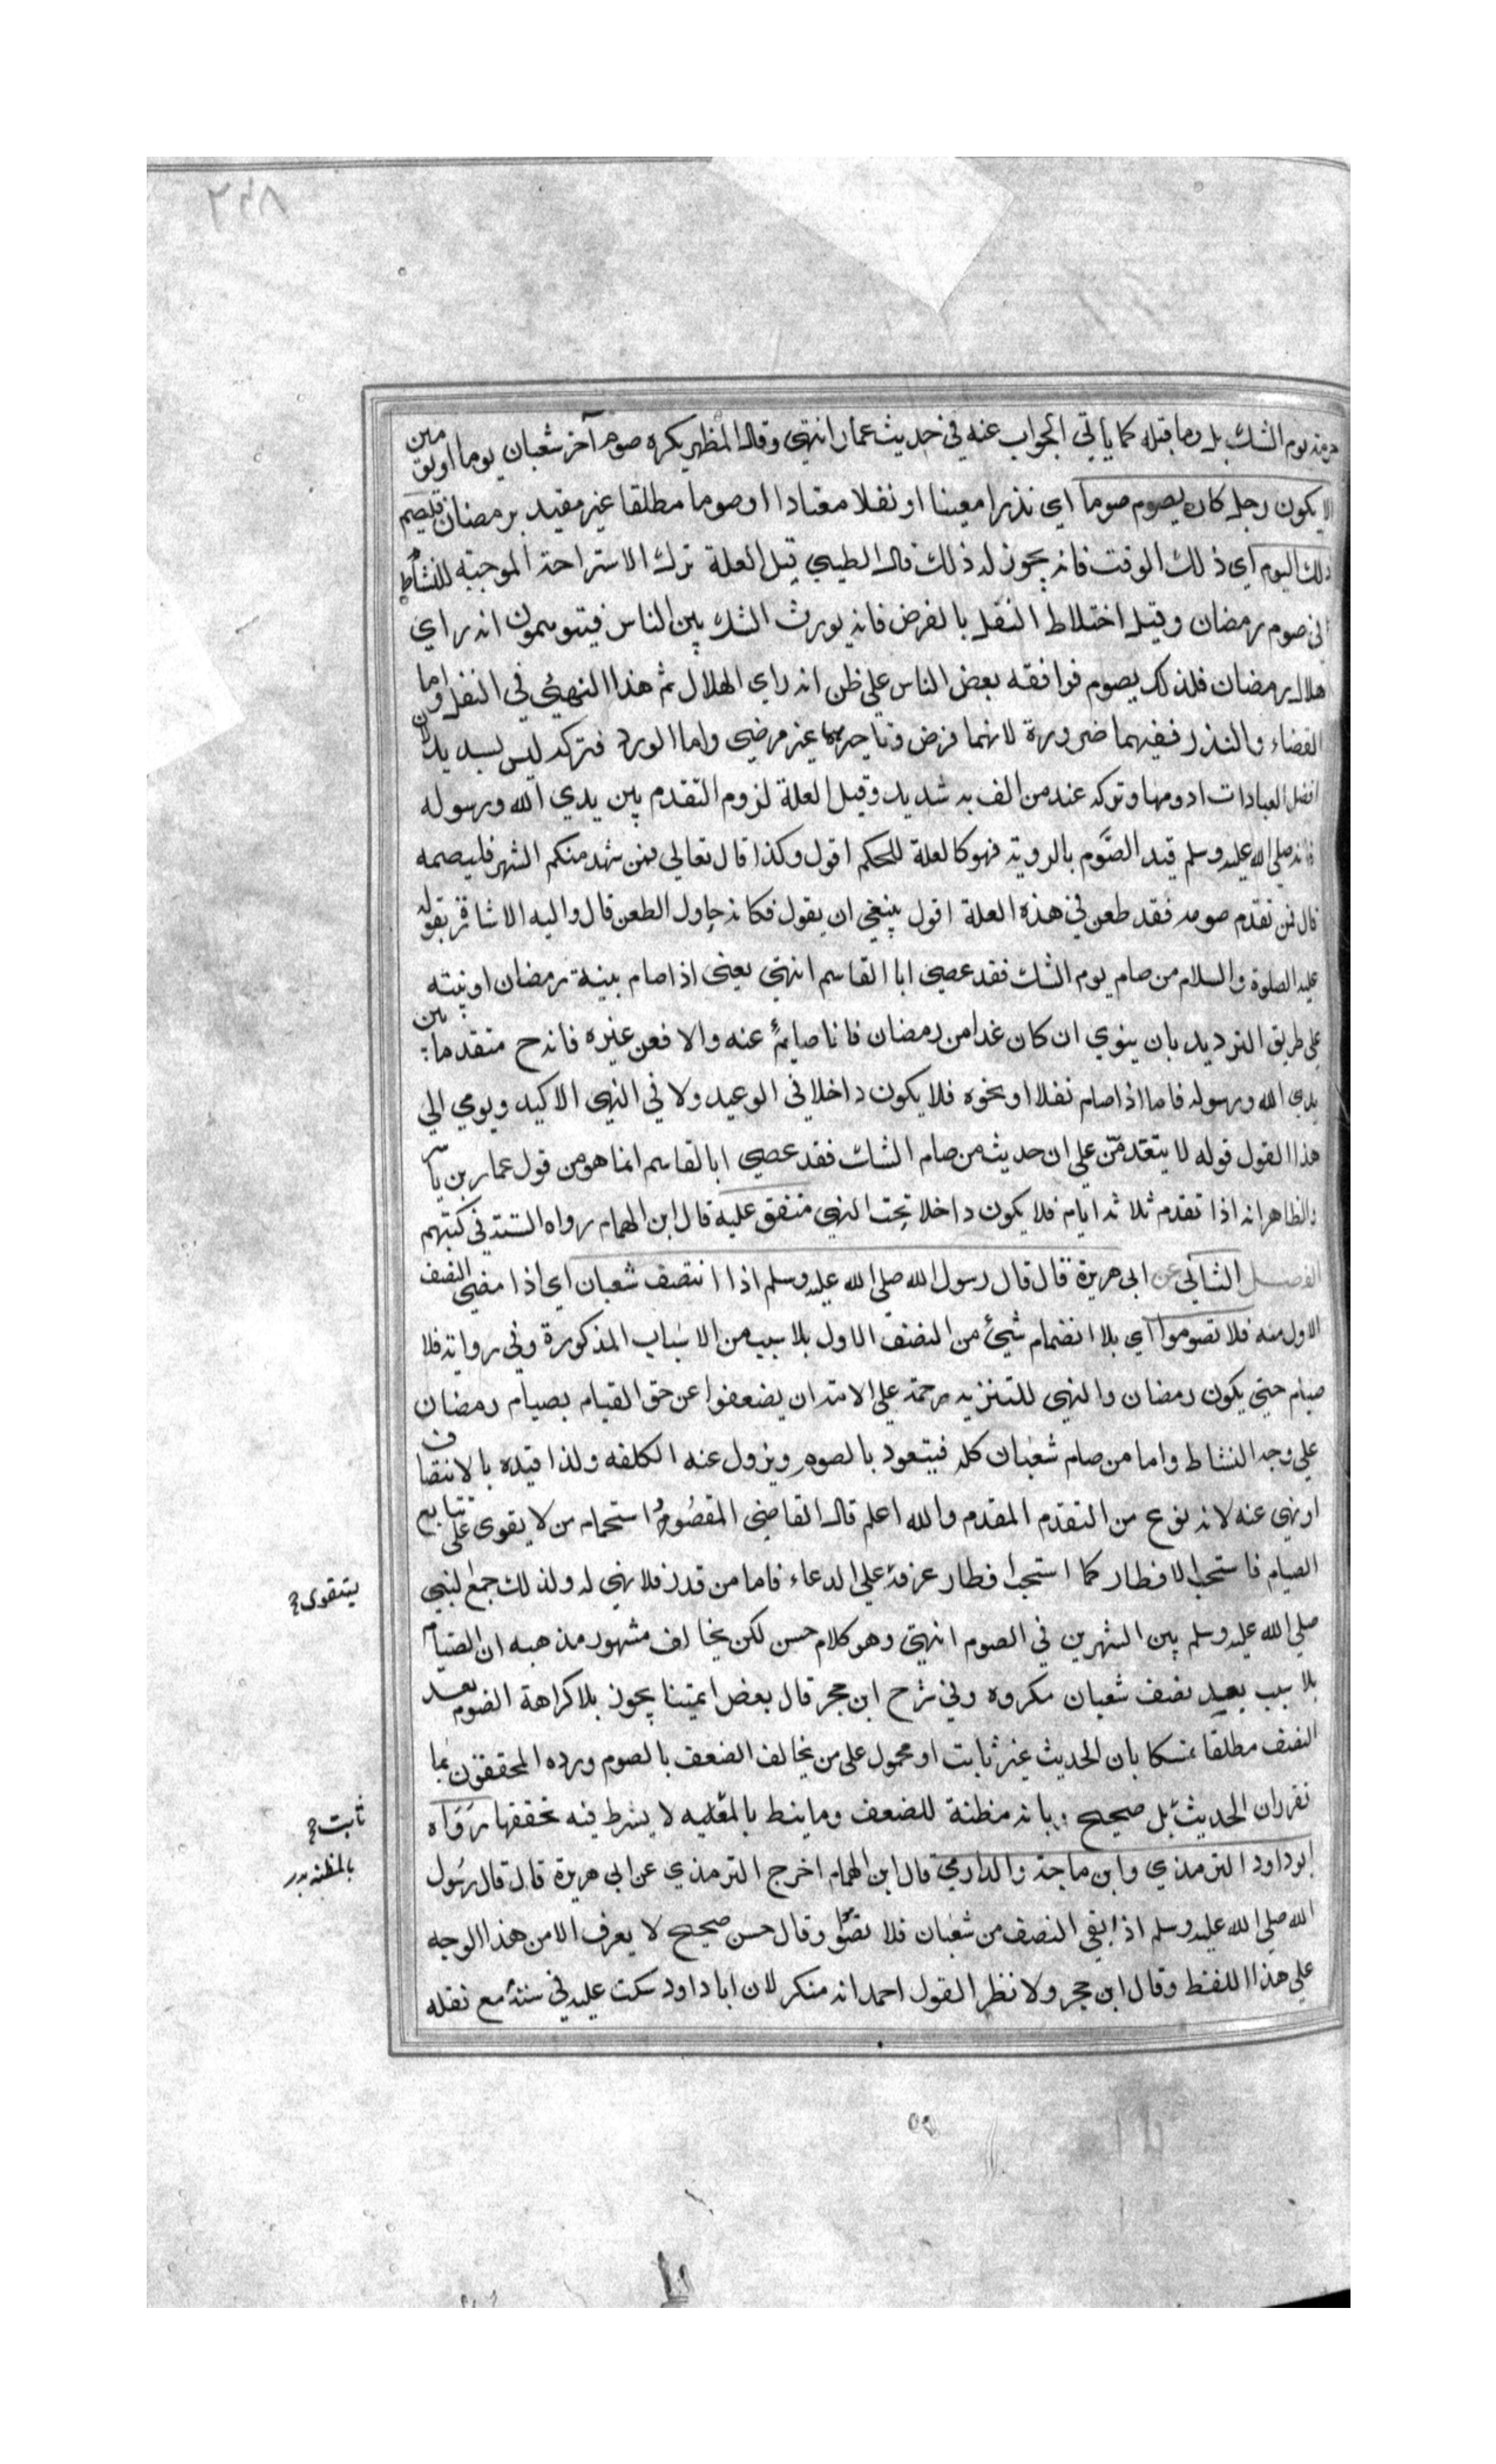 ٢٤٨
حرمة يوم الشك بل وما قبله كما ياتي الجواب عنه في حديث عمار انتهى وقال المظهر يكره صوم آخر شعبان يوما او يومين
الا يكون رجل كان يصوم صوما اي نذرا معينا او نفلا معتادا او صوما مطلقا غير مقيد برمضان فليصم
ذلك اليوم اي ذلك الوقت فانه يجوز له ذلك قال الطيبي قيل العلة ترك الاستراحة الموجبة للنشاط
في صوم رمضان وقيل اختلاط النفل بالفرض فانه يورث الشك بين الناس فيتوهمون انه راي
هلال رمضان فلذلك يصوم فوافقه بعض الناس علي ظن انه راي الهلال ثم هذا النهي في النفل واما
القضاء والنذر ففيهما ضرورة لانهما فرض وتاخيرهما غير مرضي واما الورد فتركه ليس بسديد لان
افضل العبادات ادومها وتركه عند من الف به شديد وقيل العلة لزوم التقدم بين يدي الله ورسوله
فانه صلي الله عليه وسلم قيد الصوم بالروية فهو كالعلة للحكم اقول وكذا قال تعالي فمن شهد منكم الشهر فليصمه
قال فمن تقدم صومه فقد طعن في هذه العلة اقول ينبغي ان يقول فكانه حاول الطعن قال واليه الاشارة بقوله
عليه الصلوة والسلام من صام يوم الشك فقد عصي ابا القاسم انتهى يعني اذا صام بنية رمضان او نيته
علي طريق الترديد بان ينوي ان كان غدا من رمضان فانا صايم عنه والا فعن غيره فانه ح متقدما بين
يدي الله ورسوله فاما اذا صام نفلا او نحوه فلا يكون داخلا في الوعيد ولا في النهي الاكيد ويومي الي
هذا القول قوله لا يتقدمن علي ان حديث من صام الشك فقد عصي ابا لقاسم انما هو من قول عمار بن ياسر
والظاهر انه اذا تقدم ثلاثة ايام فلا يكون داخلا تحت النهي متفق عليه قال ابن الهمام رواه الستة في كتبهم
الفصل الثاني عن ابي هريرة قال قال رسول الله صلي الله عليه وسلم اذا انتصف شعبان اي اذا مضي النصف
الاول منه فلا تصوموا اي بلا انضمام شيئ من النصف الاول بلا سبب من الاسباب المذكورة وفي رواية فلا
صيام حتي يكون رمضان والنهي للتنزيه رحمة علي الامة ان يضعفوا عن حق القيام بصيام رمضان
علي وجه النشاط واما من صام شعبان كله فيتعود بالصوم ويزول عنه الكلفه ولذا قيده بالانتصاف
او نهي عنه لانه نوع من التقدم المقدم والله اعلم قال القاضي المقصود استحمام من لا يقوى على تتابع
الصيام فاستحب الافطار كما استحب افطار عرفة علي الدعاء فاما من قدر فلا نهي له ولذلك جمع النبي
يتقوى
صلي الله عليه وسلم بين الشهرين في الصوم انتهي وهو كلام حسن لكن يخالف مشهور مذهبه ان الصيام
بلا سبب بعيد نصف شعبان مكروه وفي شرح ابن حجر قال بعض ايمتنا يجوز بلا كراهة الصوم بعد
النصف مطلقا تمسكا بان الحديث غير ثابت او محمول على من يخالف الضعف بالصوم ورده المحققون بما
تقرر ان الحديث بل صحيح وبانه مظنة للضعف وما ينط بالمغليه لا يشرط فيه تحققها رواه
ثابت
بالمظنة بدر
ابو داود الترمذي وابن ماجة والدارمي قال ابن الهمام اخرج الترمذي عن ابي هريرة قال قال رسول
الله صلي الله عليه وسلم اذا بقي النصف من شعبان فلا تصوموا وقال حسن صحيح لا يعرف الا من هذا الوجه
علي هذا اللفظ وقال ابن حجر ولا نظر القول احمد انه منكر لان ابا داود سكت عليه في سننه مع نقله